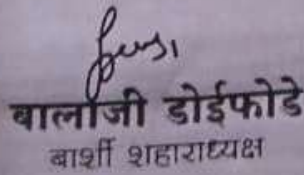 बालाजी डोईफोडे
बार्शी शहराध्यक्ष